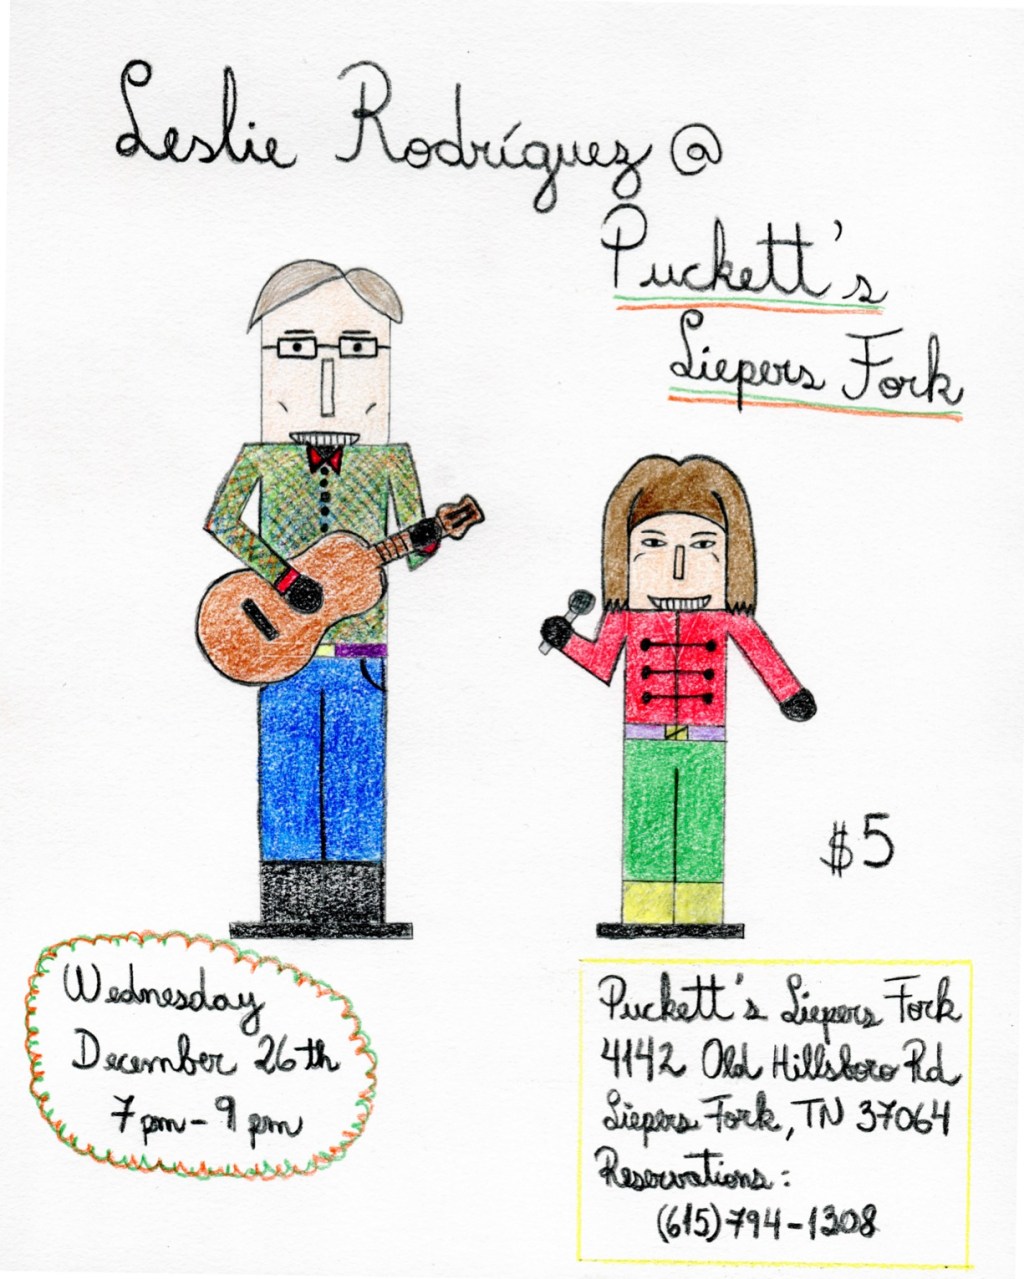 Leslie Rodríguez @
Puckett's
Liepers Fork
$5
Wednesday
December 26th
7 pm - 9 pm
Puckett's Liepers Fork
4142 Old Hillsboro Rd
Liepers Fork, TN 37064
Reservations:
(615)794-1308